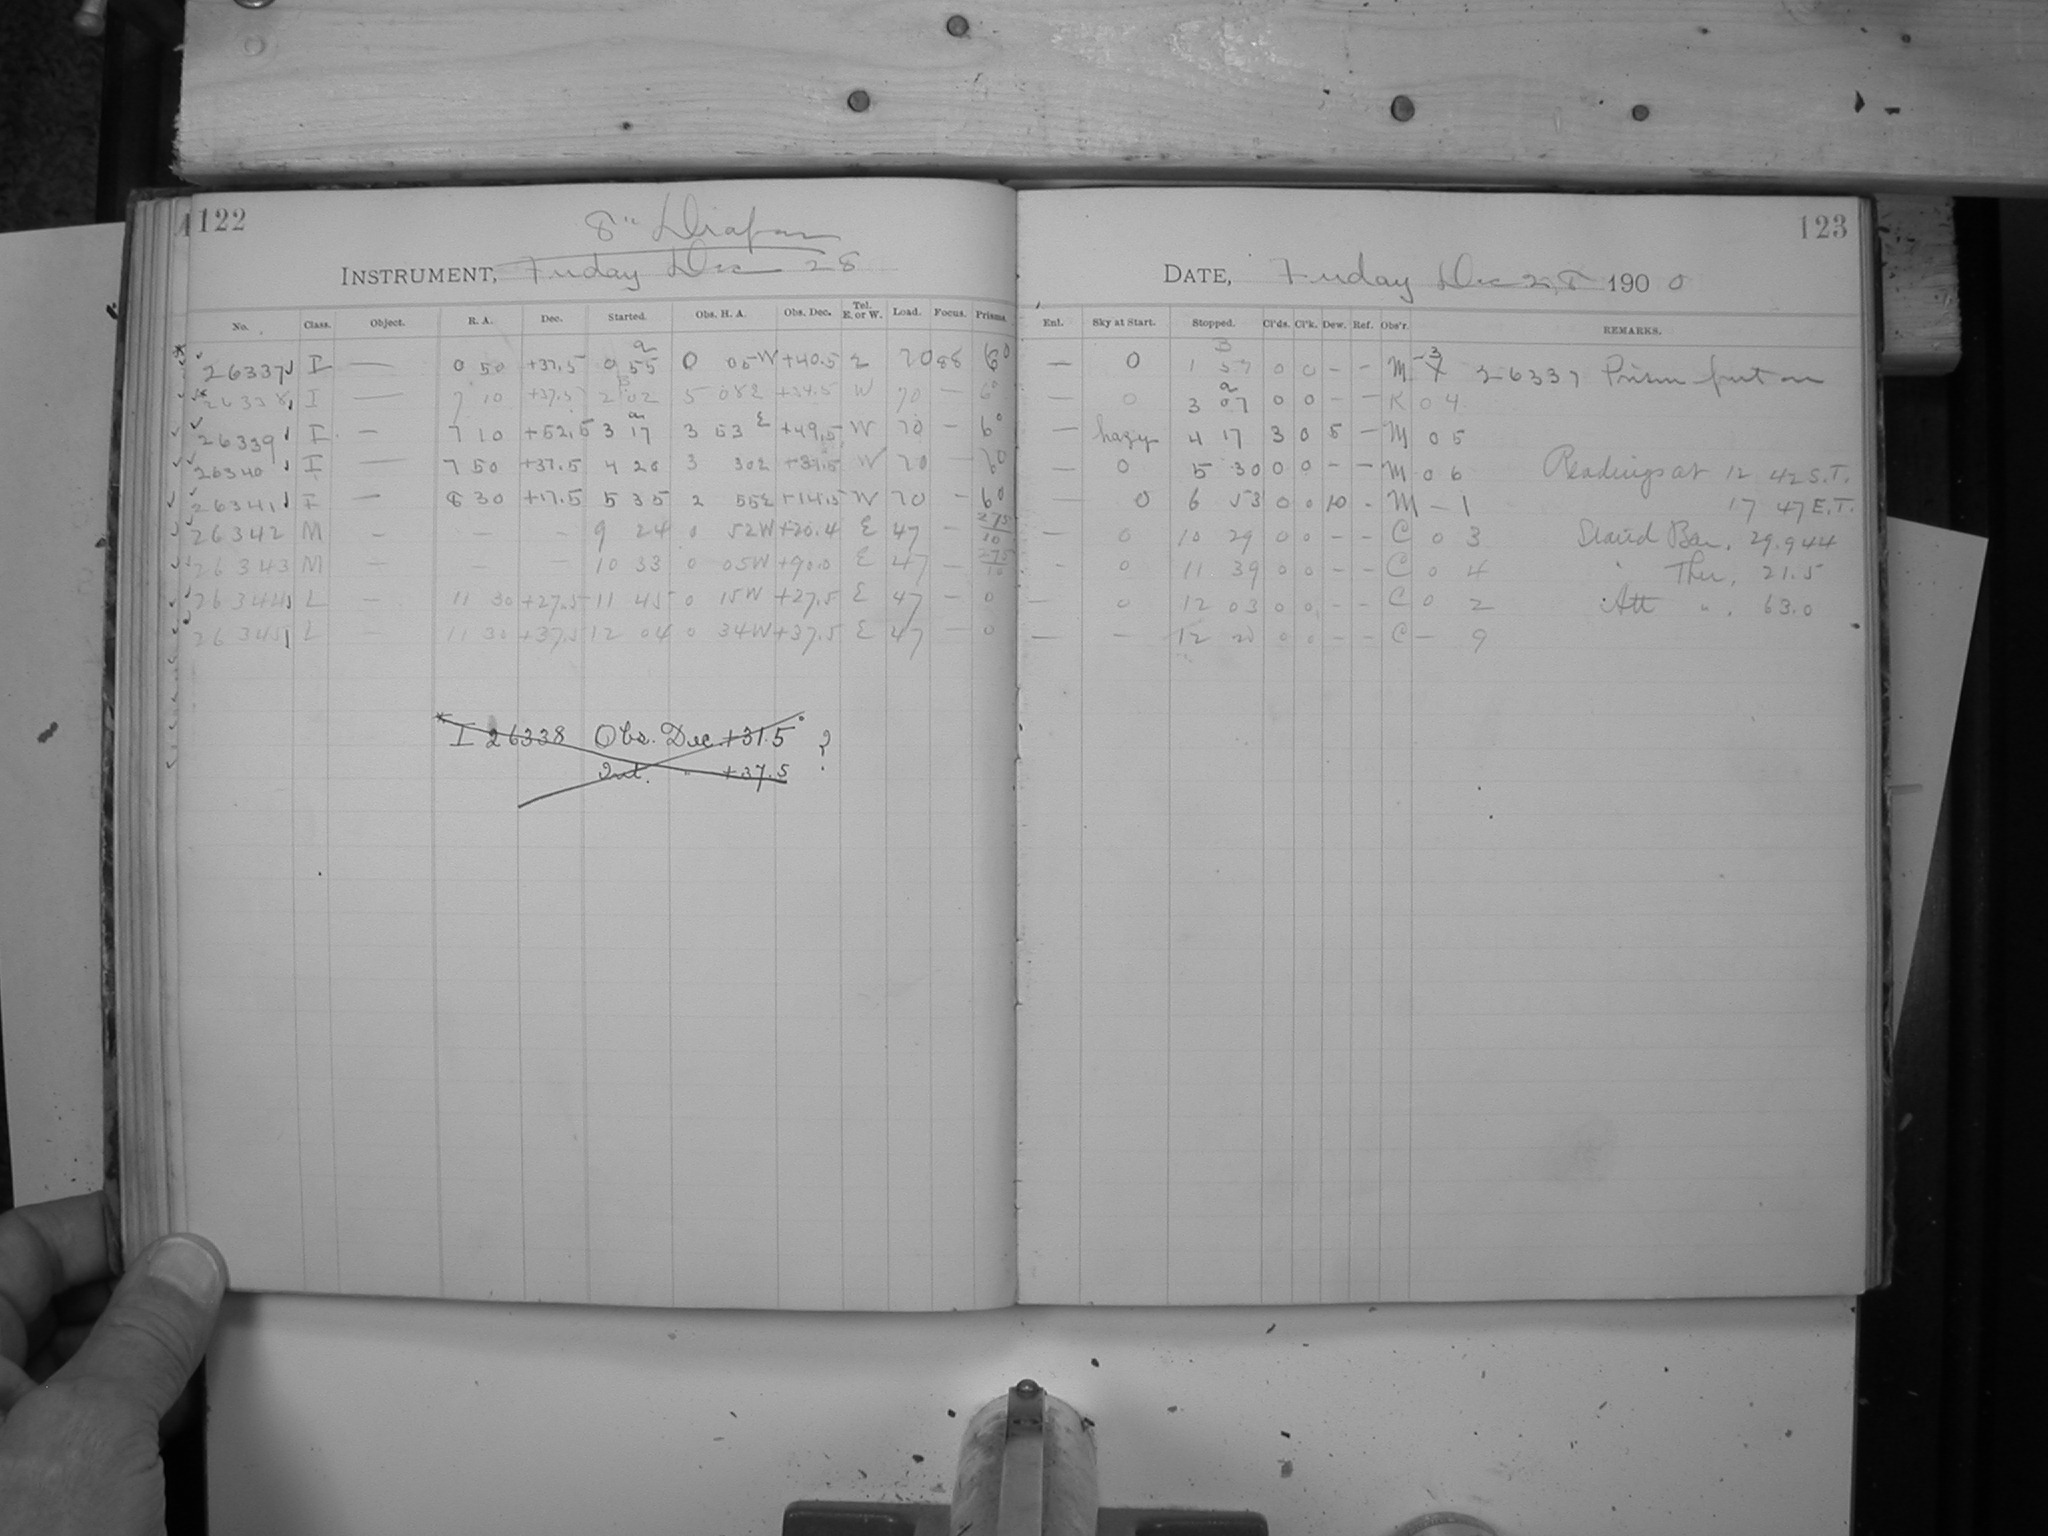 122
8"
INSTRUMENT, Friday Dec 28
No. Class. Object. R. A. Dec. Started. Obs. H. A. Obs. Dec. Tel. E. or W. Load. Focus. Prisms.
26337 I — 0 50 +37.5 0 55 0 05 W +40.5 E 70 88 6°
26338 I — 7 10 +37.5 2 02 5 08 E +34.5 W 70 — 6°
26339 I — 7 10 +52.5 3 17 3 53 E +49.5 W 70 — 6°
26340 I — 7 50 +37.5 4 20 3 30 E W 70 — 6°
26341 I — 8 30 +17.5 5 35 2 55 E +14.5 W 70 — 6°
26342 M — — — 9 24 0 52 W +20.4 E 47 — 275/10
26343 M — — — 10 33 0 05 W +90.0 E 47 — 275/10
26344 L — 11 30 +27.5 11 45 0 15 W +27.5 E 47 — 0
26345 L — 11 30 +37.5 12 04 0 34 W +37.5 E 47 — 0
* I 26338 Obs. Dec. +31.5° ?
Int. " +37.5
123
DATE, Friday Dec 28, 1900
Enl. Sky at Start. Stopped. Cl'ds. Cl'k. Dew. Ref. Obs'r. REMARKS.
— 0 1 57 0 0 – – M –3 26337 Prism put on
— 0 3 07 0 0 – – K 0 4
— hazy 4 17 3 0 5 – M 0 5
— 0 5 30 0 0 – – M 0 6 Readings at 12 42 S.T.
— 0 6 53 0 0 10 - M – 1 17 47 E.T.
— 0 10 29 0 0 – – C 0 3 Bar. 29.944
– 0 11 39 0 0 – – C 0 4 " Ther. 21.5
— 0 12 03 0 0 – – C 0 2 Att " . 63.0
— – 12 20 0 0 – – C – 9